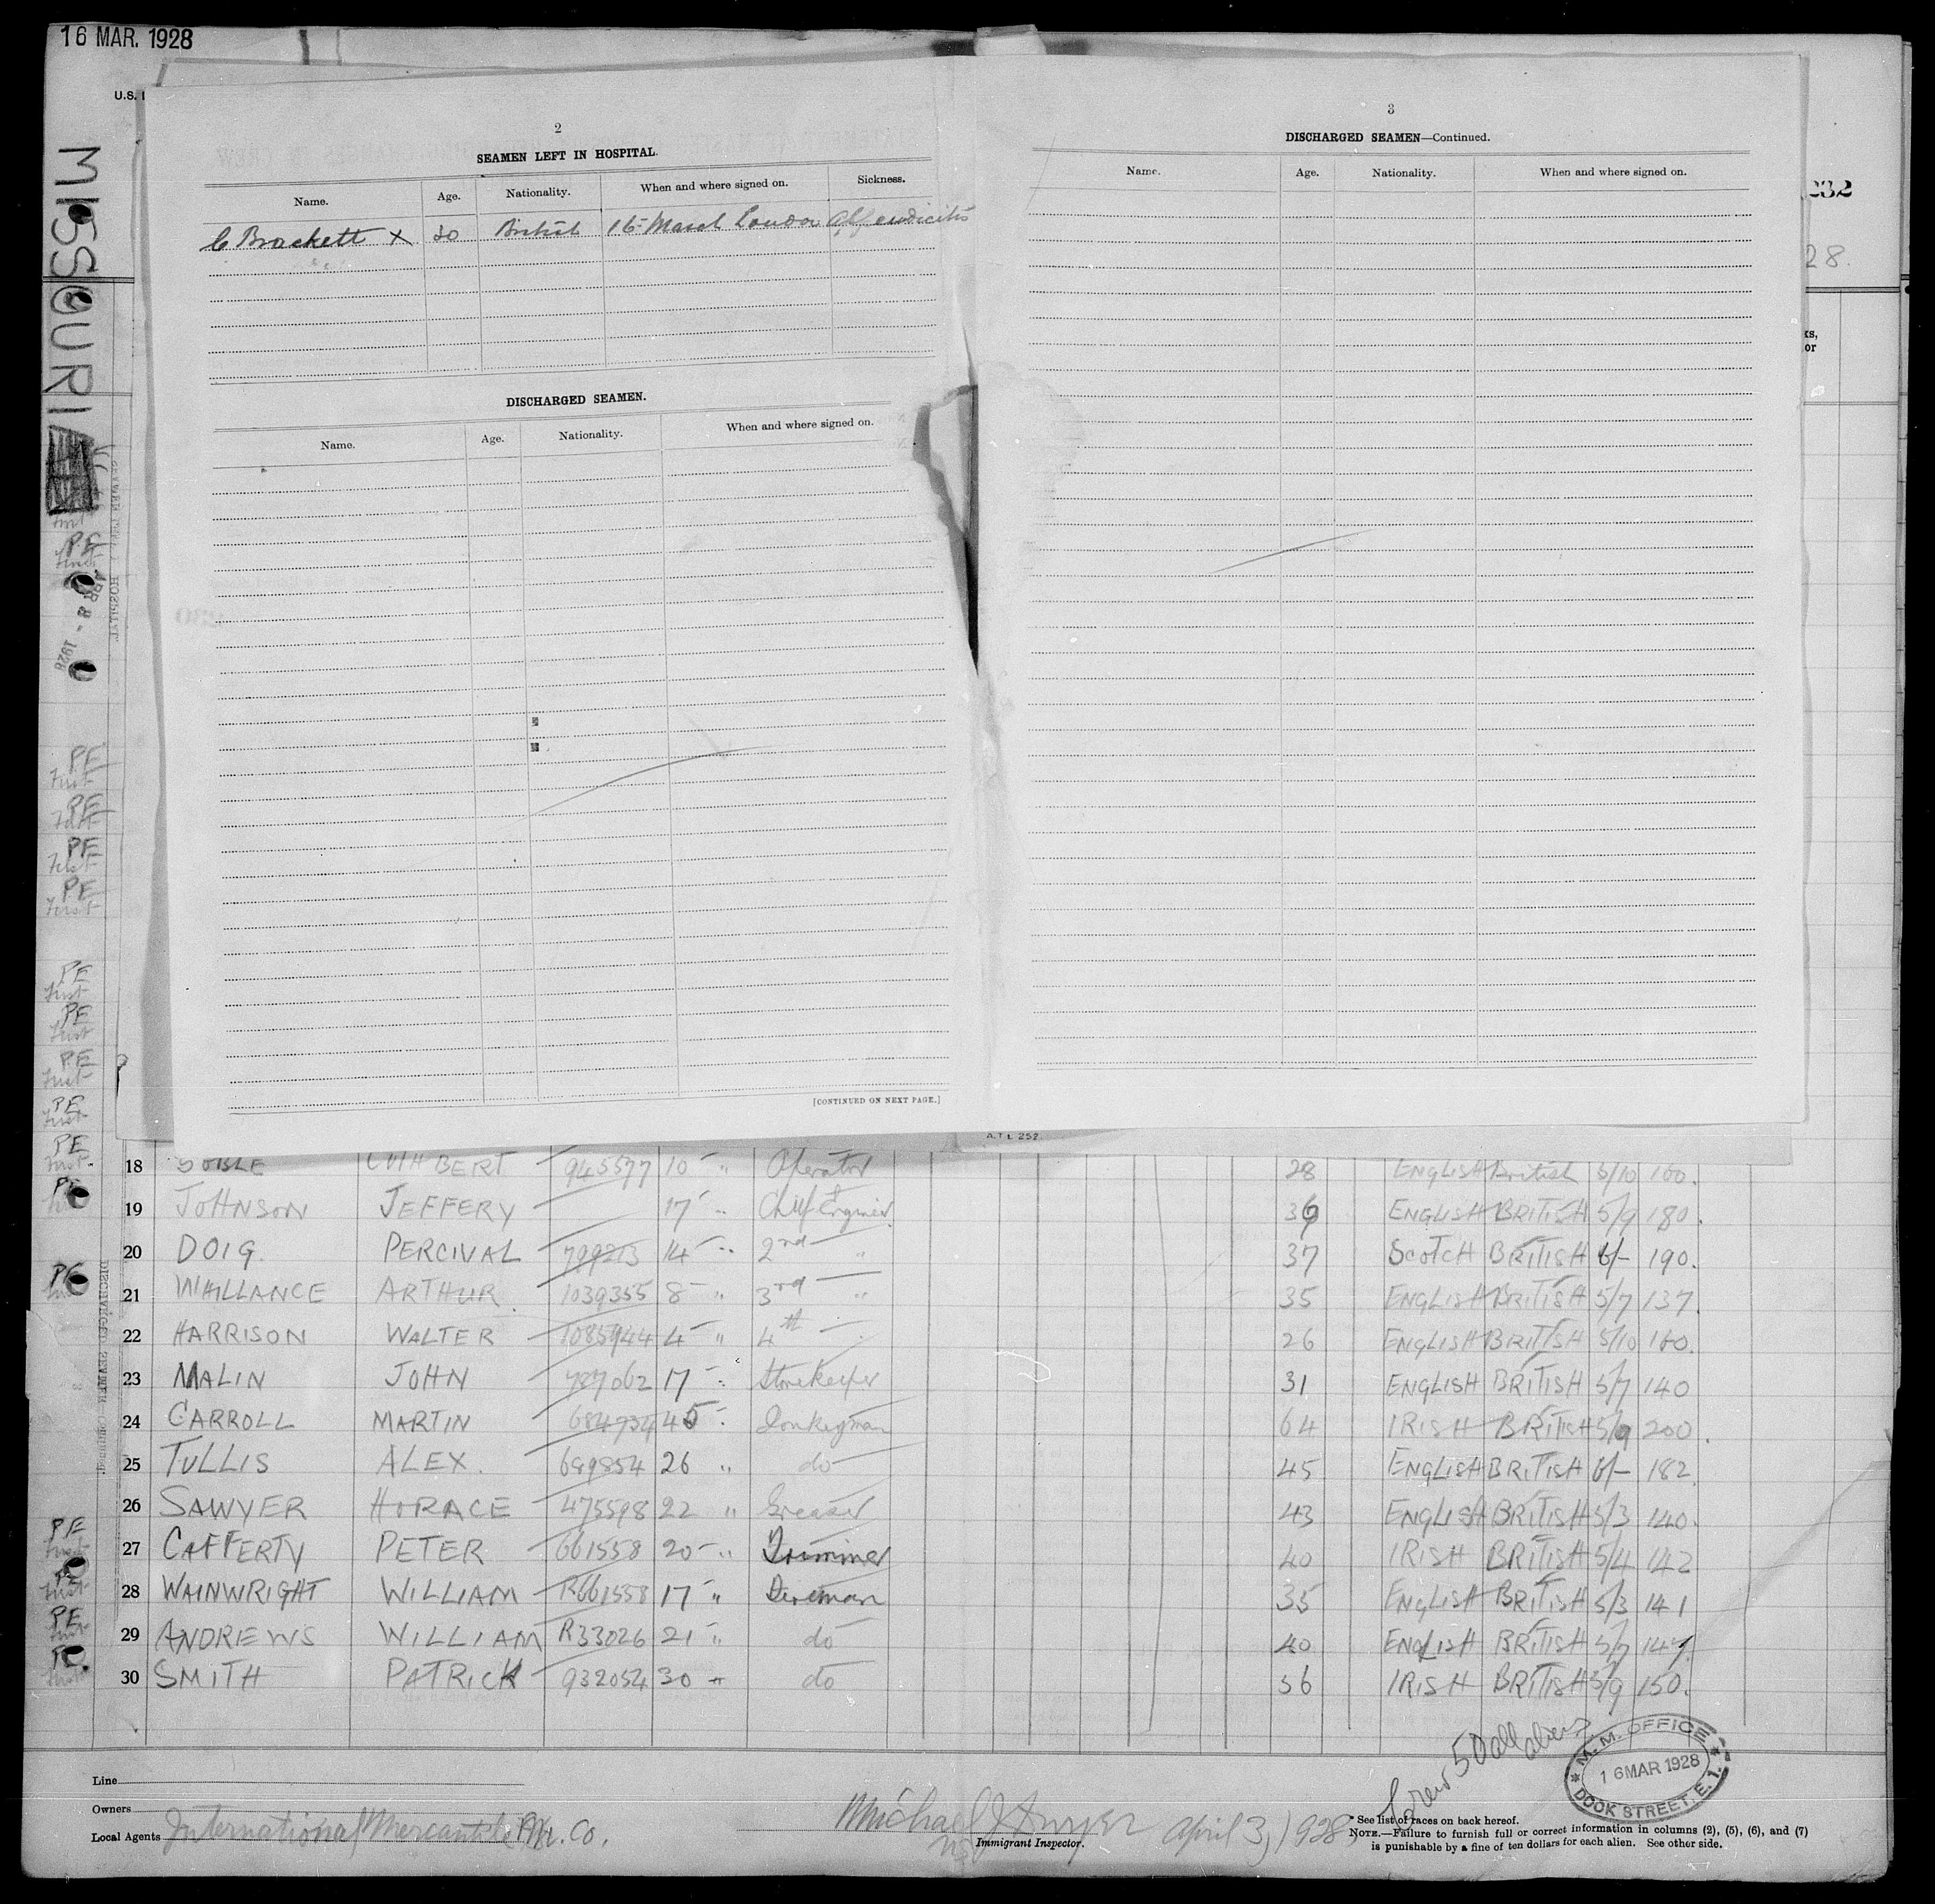 16 MAR. 1928
U.S.
MISSOURI
232
28.
2
SEAMEN LEFT IN HOSPITAL.
Name. Age. Nationality. When and where signed on. Sickness.
C Brackett X 20 British 16 March London Appendicitis
DISCHARGED SEAMEN.
Name. Age. Nationality. When and where signed on.
[CONTINUED ON NEXT PAGE.]
3
DISCHARGED SEAMEN—Continued.
Name. Age. Nationality. When and where signed on.
A.T.L. 252.
18 CUTHBERT 945577 10 " Operator 28 ENGLISH British 5/10 160.
19 JOHNSON JEFFERY 17 " Chief Engineer 39 ENGLISH BRITISH 5/9 180.
20 DOIG. PERCIVAL 14 " 2nd " 37 SCOTCH BRITISH 6/- 190.
21 WHILLANCE ARTHUR 1039355 8 " 3rd " 35 ENGLISH BRITISH 5/7 137.
22 HARRISON WALTER 1085944 4 " 4th " 26 ENGLISH BRITISH 5/10 160.
23 MALIN JOHN 787062 17 " Storekeeper 31 ENGLISH BRITISH 5/7 140
24 CARROLL MARTIN 684934 45 " Donkeyman 64 IRISH BRITISH 5/9 200.
25 TULLIS ALEX. 689854 26 " do 45 ENGLISH BRITISH 6/- 182
26 SAWYER HORACE 475598 22 " Greaser 43 ENGLISH BRITISH 5/3 140.
27 CAFFERTY PETER 661558 20 " Trimmer 40 IRISH BRITISH 5/4 142
28 WAINWRIGHT WILLIAM R661558 17 " Fireman 35 ENGLISH BRITISH 5/3 141
29 ANDREWS WILLIAM R33026 21 " do 40 ENGLISH BRITISH 5/7 147.
30 SMITH PATRICK 932054 30 " do 56 IRISH BRITISH 5/9 150.
Crew 50 all aliens
M. M. OFFICE
16 MAR 1928
DOCK STREET. E. 1.
Line
Owners
Local Agents International Mercantile Mr. Co.
Michael J Dwyer April 3, 1928
Immigrant Inspector.
* See list of races on back hereof.
NOTE.—Failure to furnish full or correct information in columns (2), (5), (6), and (7)
is punishable by a fine of ten dollars for each alien. See other side.